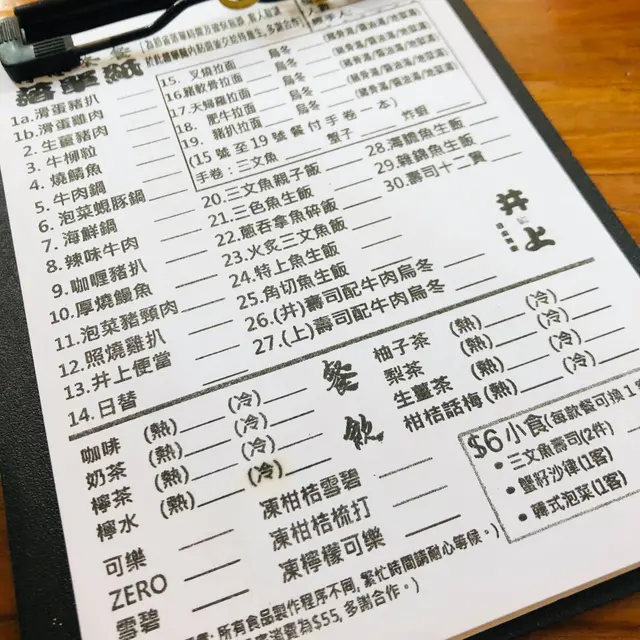 落單紙
1a.滑蛋豬扒
1b.滑蛋雞肉
2. 生薑豬肉
3. 牛柳粒
4. 燒鯖魚
5. 牛肉鍋
6. 泡菜蜆豚鍋
7. 海鮮鍋
8. 辣味牛肉
9. 咖喱豬扒
10. 厚燒鰻魚
11. 泡菜豬頸肉
12. 照燒雞扒
13. 井上便當
14. 日替
15. 叉燒拉面 烏冬 (豬骨湯/醬油湯/地獄湯)
16.豬軟骨拉面 烏冬 (豬骨湯/醬油湯/地獄湯)
17.天婦羅拉面 烏冬 (豬骨湯/醬油湯/地獄湯)
18. 肥牛拉面 烏冬 (豬骨湯/醬油湯/地獄湯)
19. 豬扒拉面 烏冬 (豬骨湯/醬油湯/地獄湯)
(15 號至19號餐付手卷一本)
手卷: 三文魚 蟹子 炸蝦
20. 三文魚親子飯
21. 三色魚生飯
22. 蔥吞拿魚碎飯
23. 火炙三文魚飯
24. 特上魚生飯
25. 角切魚生飯
26. (井)壽司配牛肉烏冬
27. (上)壽司配牛肉烏冬
28. 海鱺魚生飯
29. 雜錦魚生飯
30. 壽司十二貫
井上
餐飲
咖啡 (熱) (冷)
奶茶 (熱) (冷)
檸茶 (熱) (冷)
檸水 (熱) (冷)
可樂
ZERO
雪碧
凍柑桔雪碧
凍柑桔梳打
凍檸檬可樂
柚子茶 (熱) (冷)
梨茶 (熱) (冷)
生薑茶 (熱) (冷)
柑桔話梅 (熱) (冷)
$6小食(每款餐可換1
• 三文魚壽司(2件)
• 蟹籽沙律(1客)
• 韓式泡菜(1客)
所有食品製作程序不同, 繁忙時間請耐心等候。)
消費為$55, 多謝合作。)